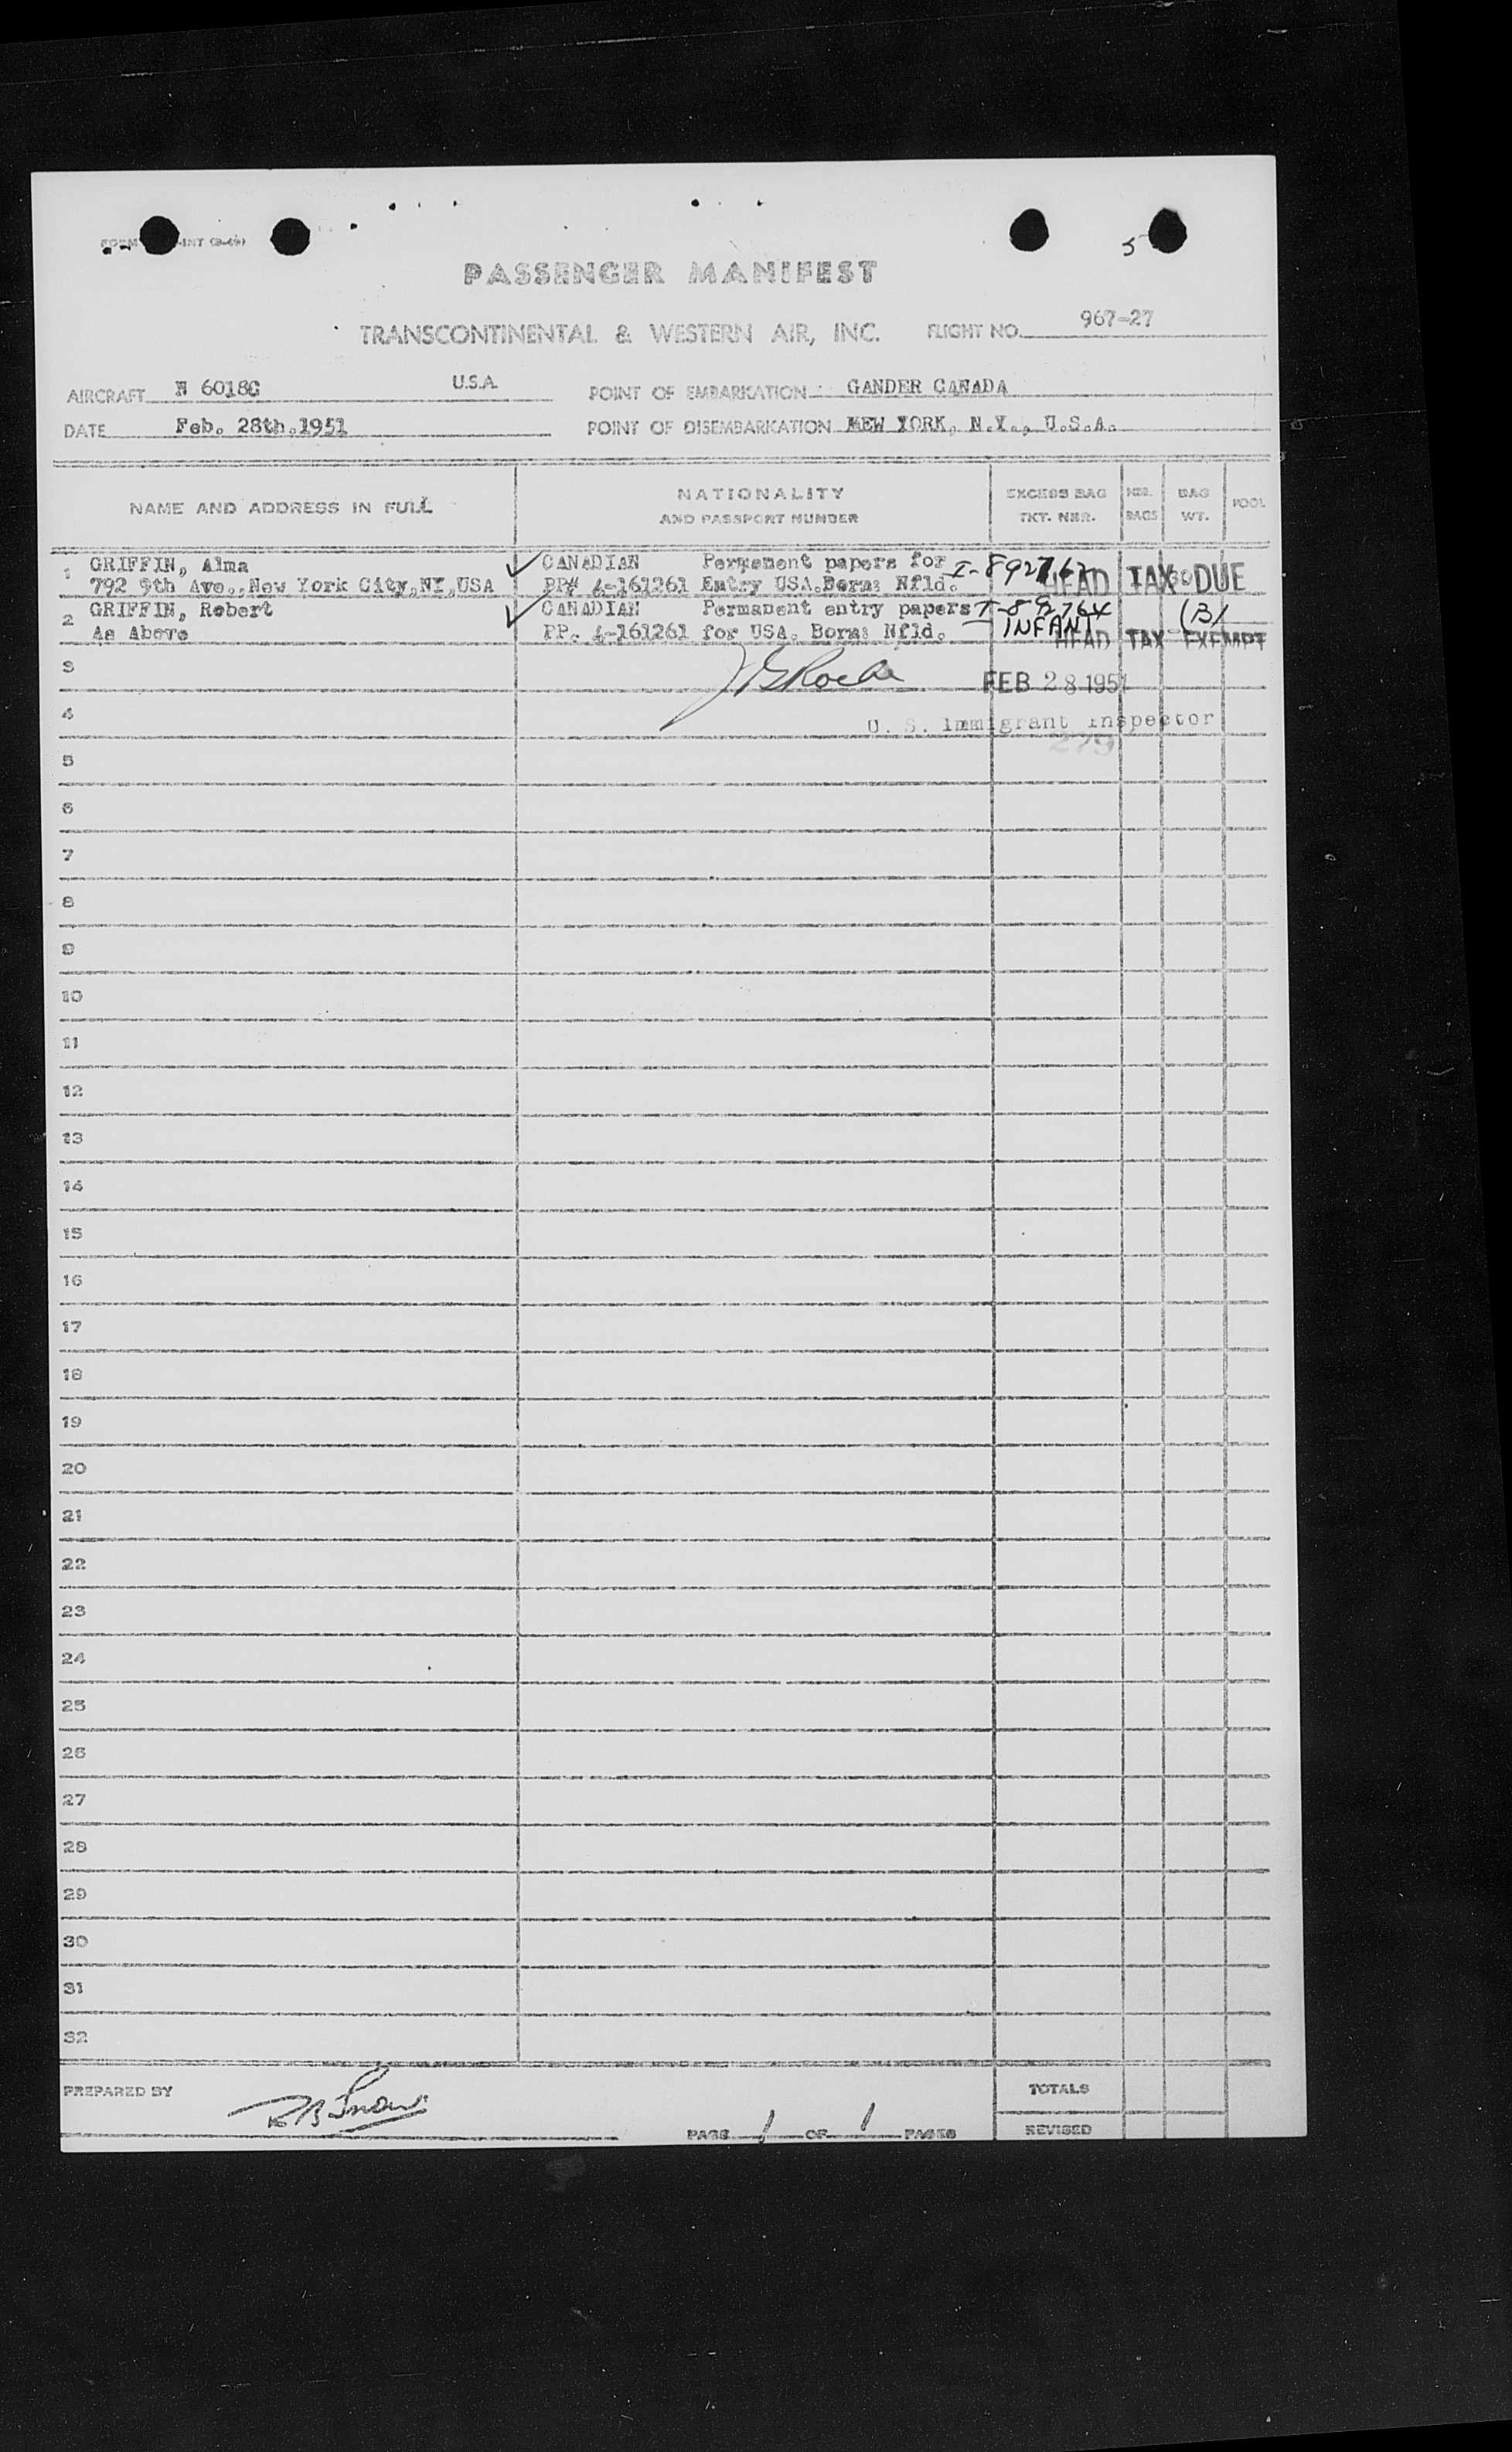 5
PASSENGER MANIFEST
TRANSCONTINENTAL & WESTERN AIR, INC. FLIGHT NO. 967-27
AIRCRAFT N 6018C U.S.A. POINT OF EMBARKATION: GANDER CANADA
DATE Feb. 28th.1951 POINT OF DISEMBARKATION NEW YORK, N.Y., U.S.A.
NAME AND ADDRESS IN FULL
NATIONALITY
AND PASSPORT NUMBER
EXCESS BAG
TKT. NBR.
NBR.
BAGS
BAG
WT.
POOL
1 GRIFFIN, Alma CANADIAN Permanent papers for
792 9th Ave., New York City, NY, USA PP# 4-161261 Entry USA. Born: Nfld. HEAD TAX DUE
2 GRIFFIN, Robert CANADIAN Permanent entry papers I-892764 (B)
As Above PP. 4-161261 for USA. Born: Nfld. INFANT HEAD TAX EXEMPT
3 FEB 28 1951
4 U. S. Immigrant Inspector
279
5
6
7
8
9
10
11
12
13
14
15
16
17
18
19
20
21
22
23
24
25
26
27
28
29
30
31
32
PREPARED BY R B Snow TOTALS
PAGE 1 OF 1 PAGES REVISED